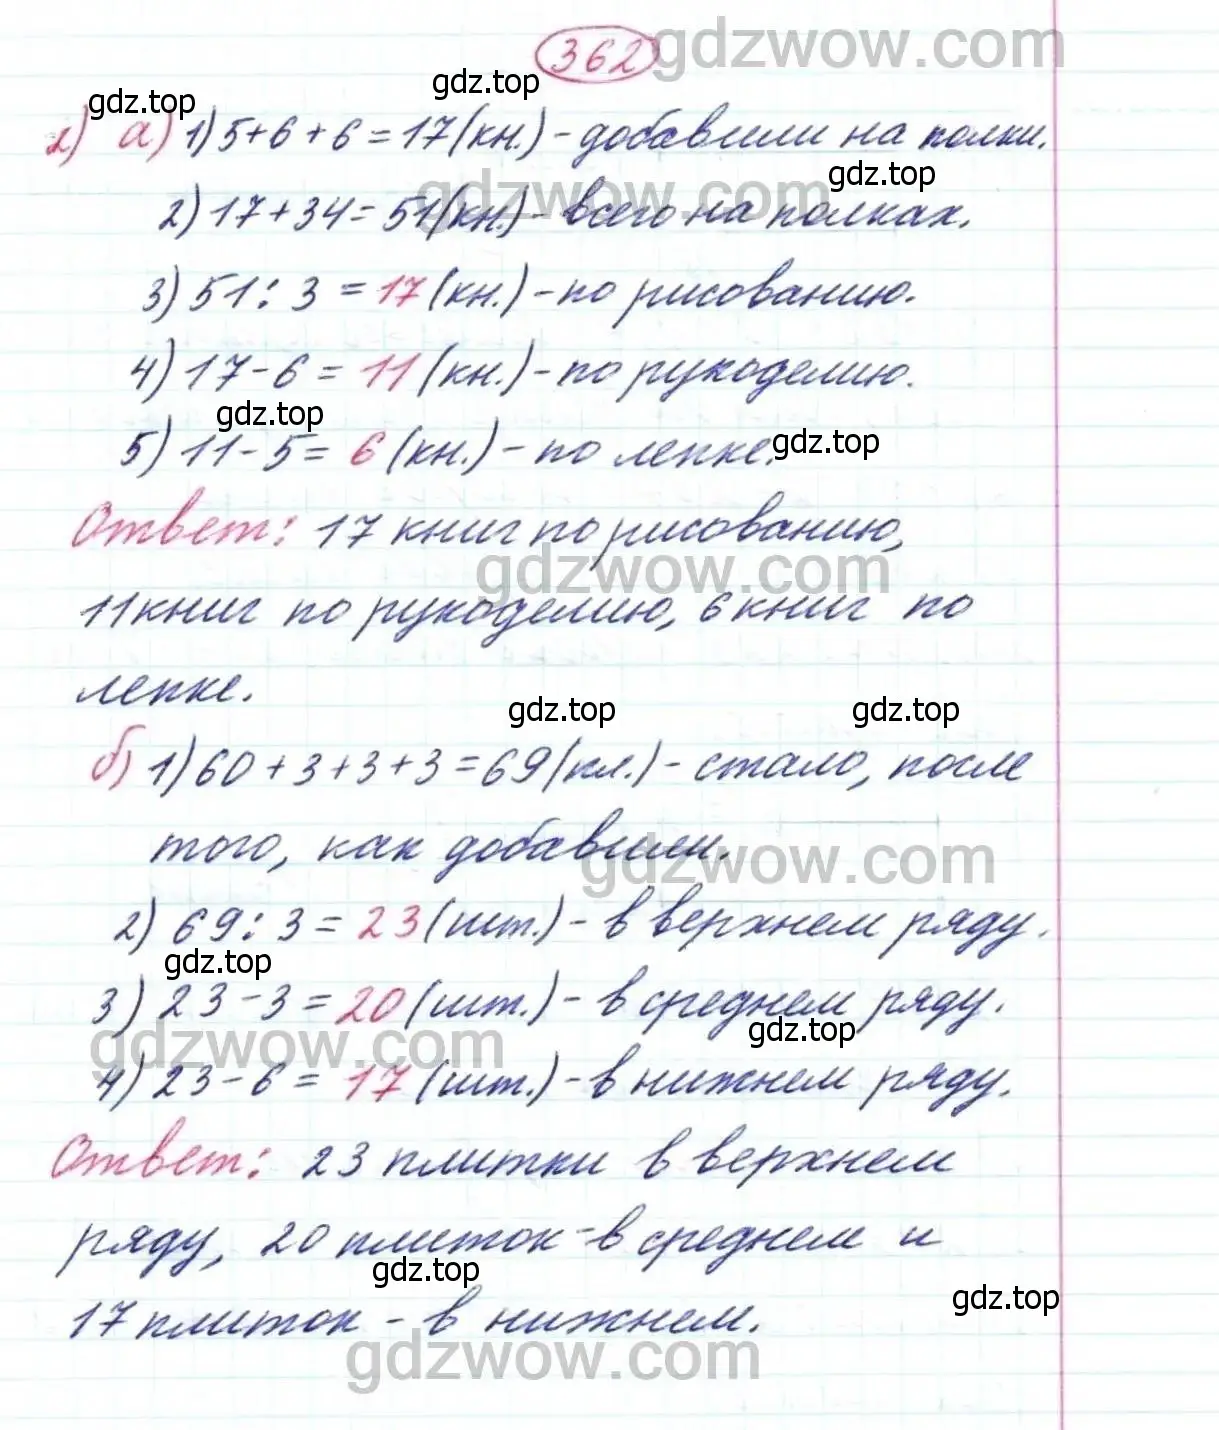 362
gdzwow.com
gdz.top
gdz.top
2) а) 1) 5+6+6=17(кн.)-добавили на полки.
gdzwow.com
gdz.top
2) 17+34=51(кн.)-всего на полках.
3) 51:3=17(кн.)-по рисованию.
4) 17-6=11(кн.)-по рукоделию.
gdz.top
5) 11-5=6(кн.)-по лепке.
gdz.top
Ответ: 17 книг по рисованию,
gdzwow.com
11 книг по рукоделию, 6 книг по
лепке.
gdz.top
gdz.top
б) 1) 60+3+3+3=69(пл.)-стало, после
того, как добавили.
gdzwow.com
2) 69:3=23(шт.)-в верхнем ряду.
gdz.top
3) 23-3=20(шт.)-в среднем ряду.
gdz.top
gdzwow.com
4) 23-6=17(шт.)-в нижнем ряду.
Ответ: 23 плитки в верхнем
ряду, 20 плиток-в среднем и
gdz.top
gdz.top
17 плиток-в нижнем.
gdzwow.com